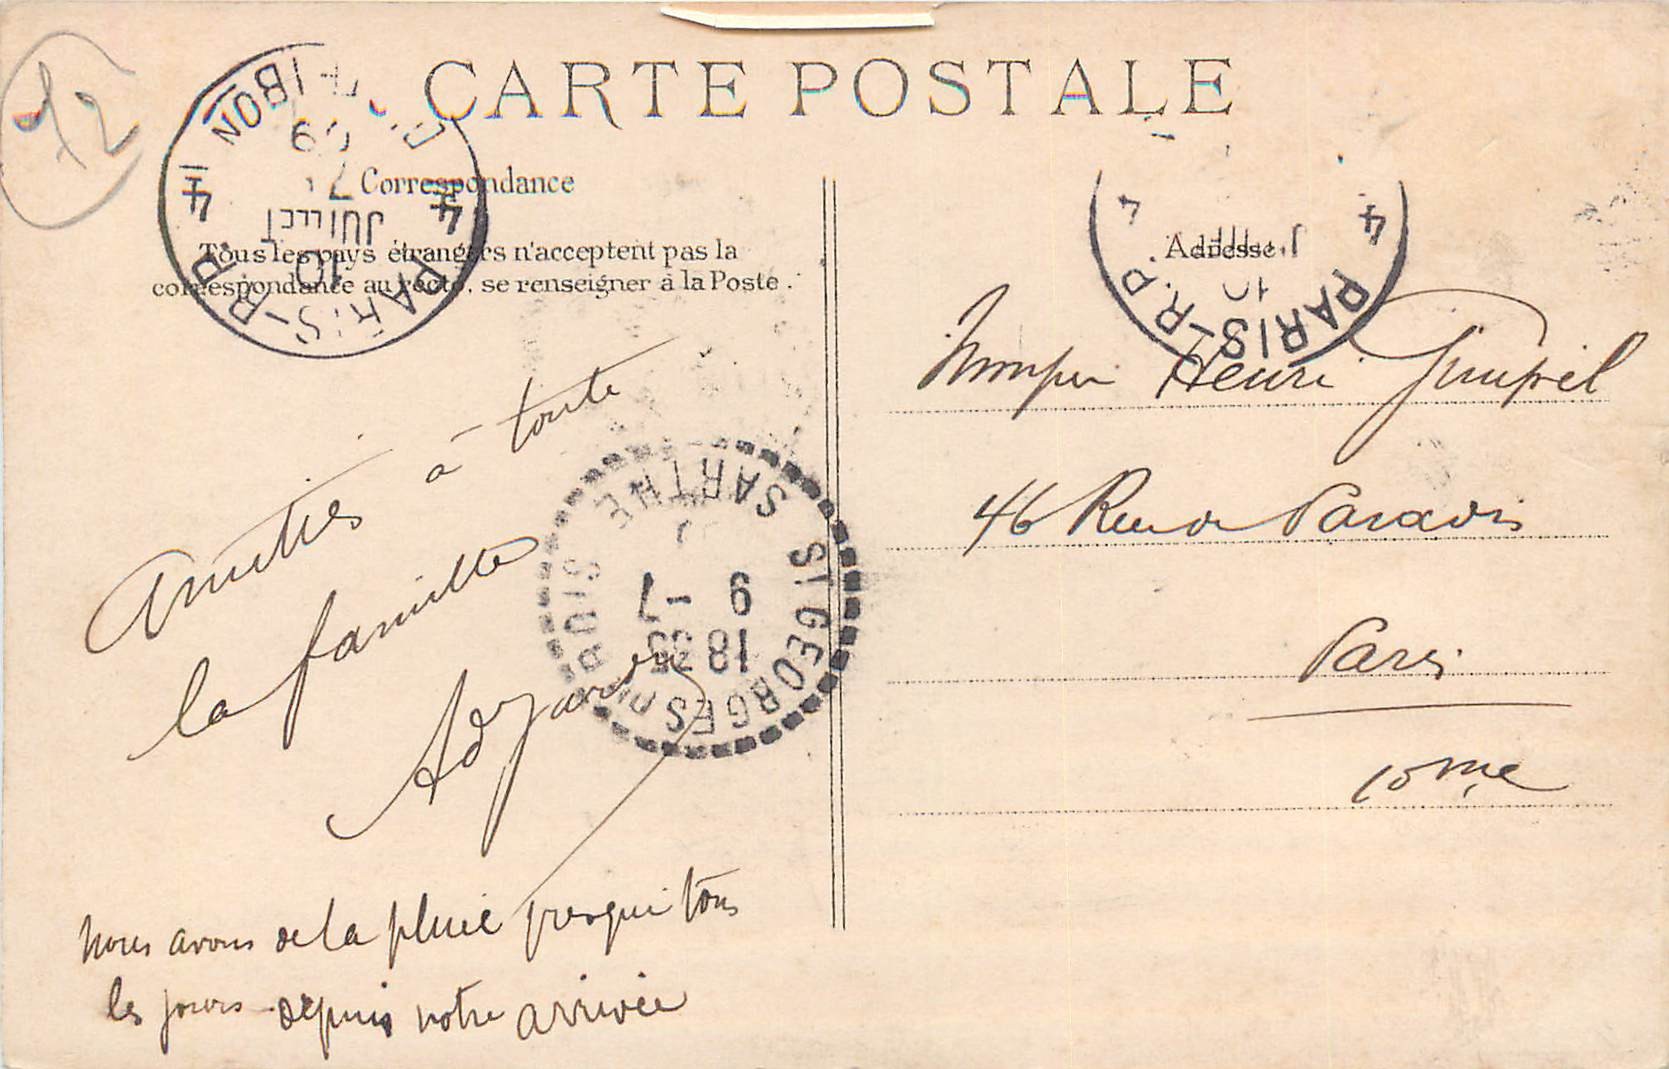 72
CARTE POSTALE
Correspondance
Tous les pays étrangers n'acceptent pas la
correspondance au recto, se renseigner à la Poste.
Adresse
PARIS-R.P.
4 4
10
JUILLET
7
09
PARIS-R.P.
4 4
10
Amitiés à toute
la famille
Nous avons de la pluie presque tous
les jours depuis notre arrivée
ST GEORGES DU
SARTHE
18 35
9 -7
Henri
46 Rue de Paradis
Paris
10me